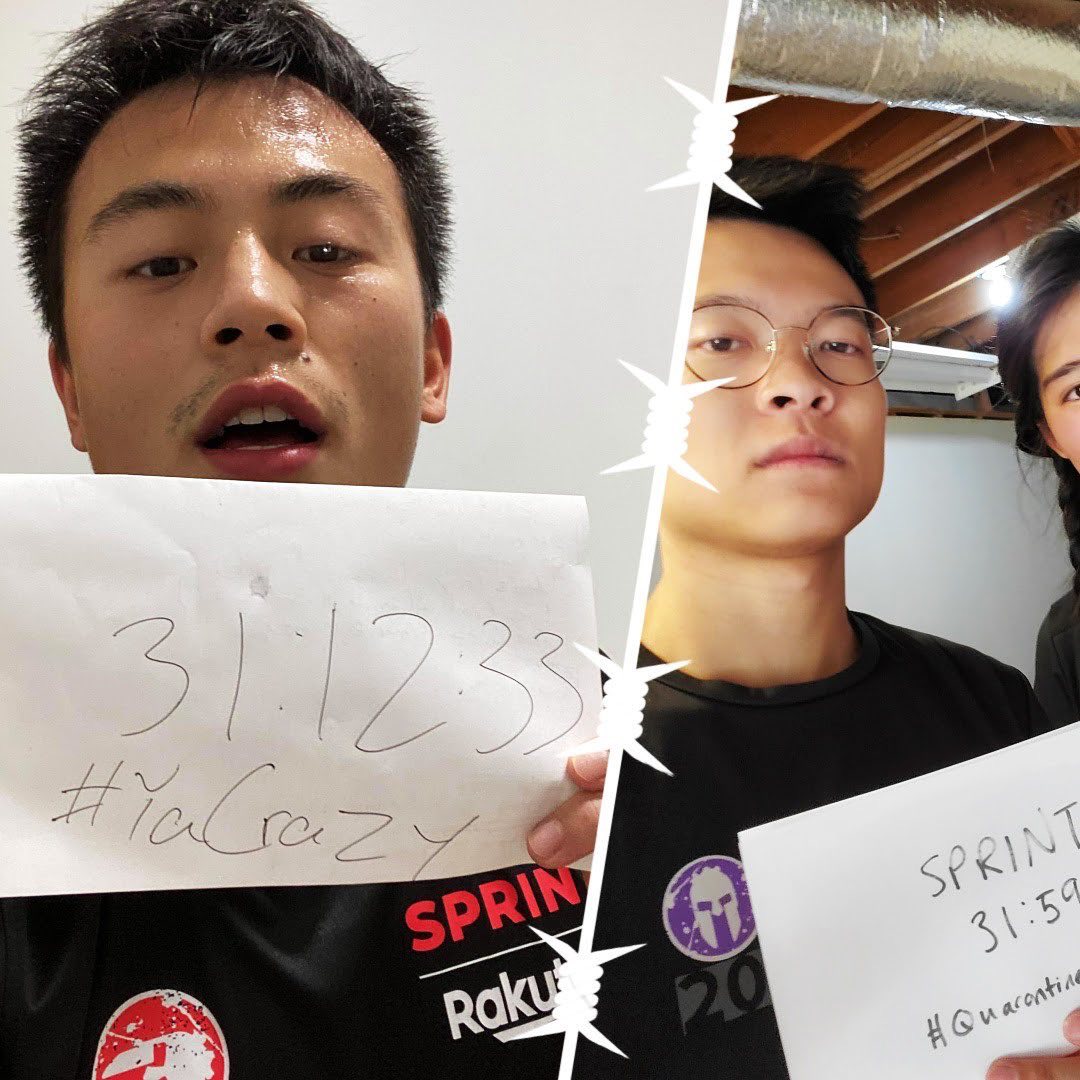 31:12:33
#YaCrazy
SPRIN
Rakut
20
SPRINT
31:59
#Quarantine